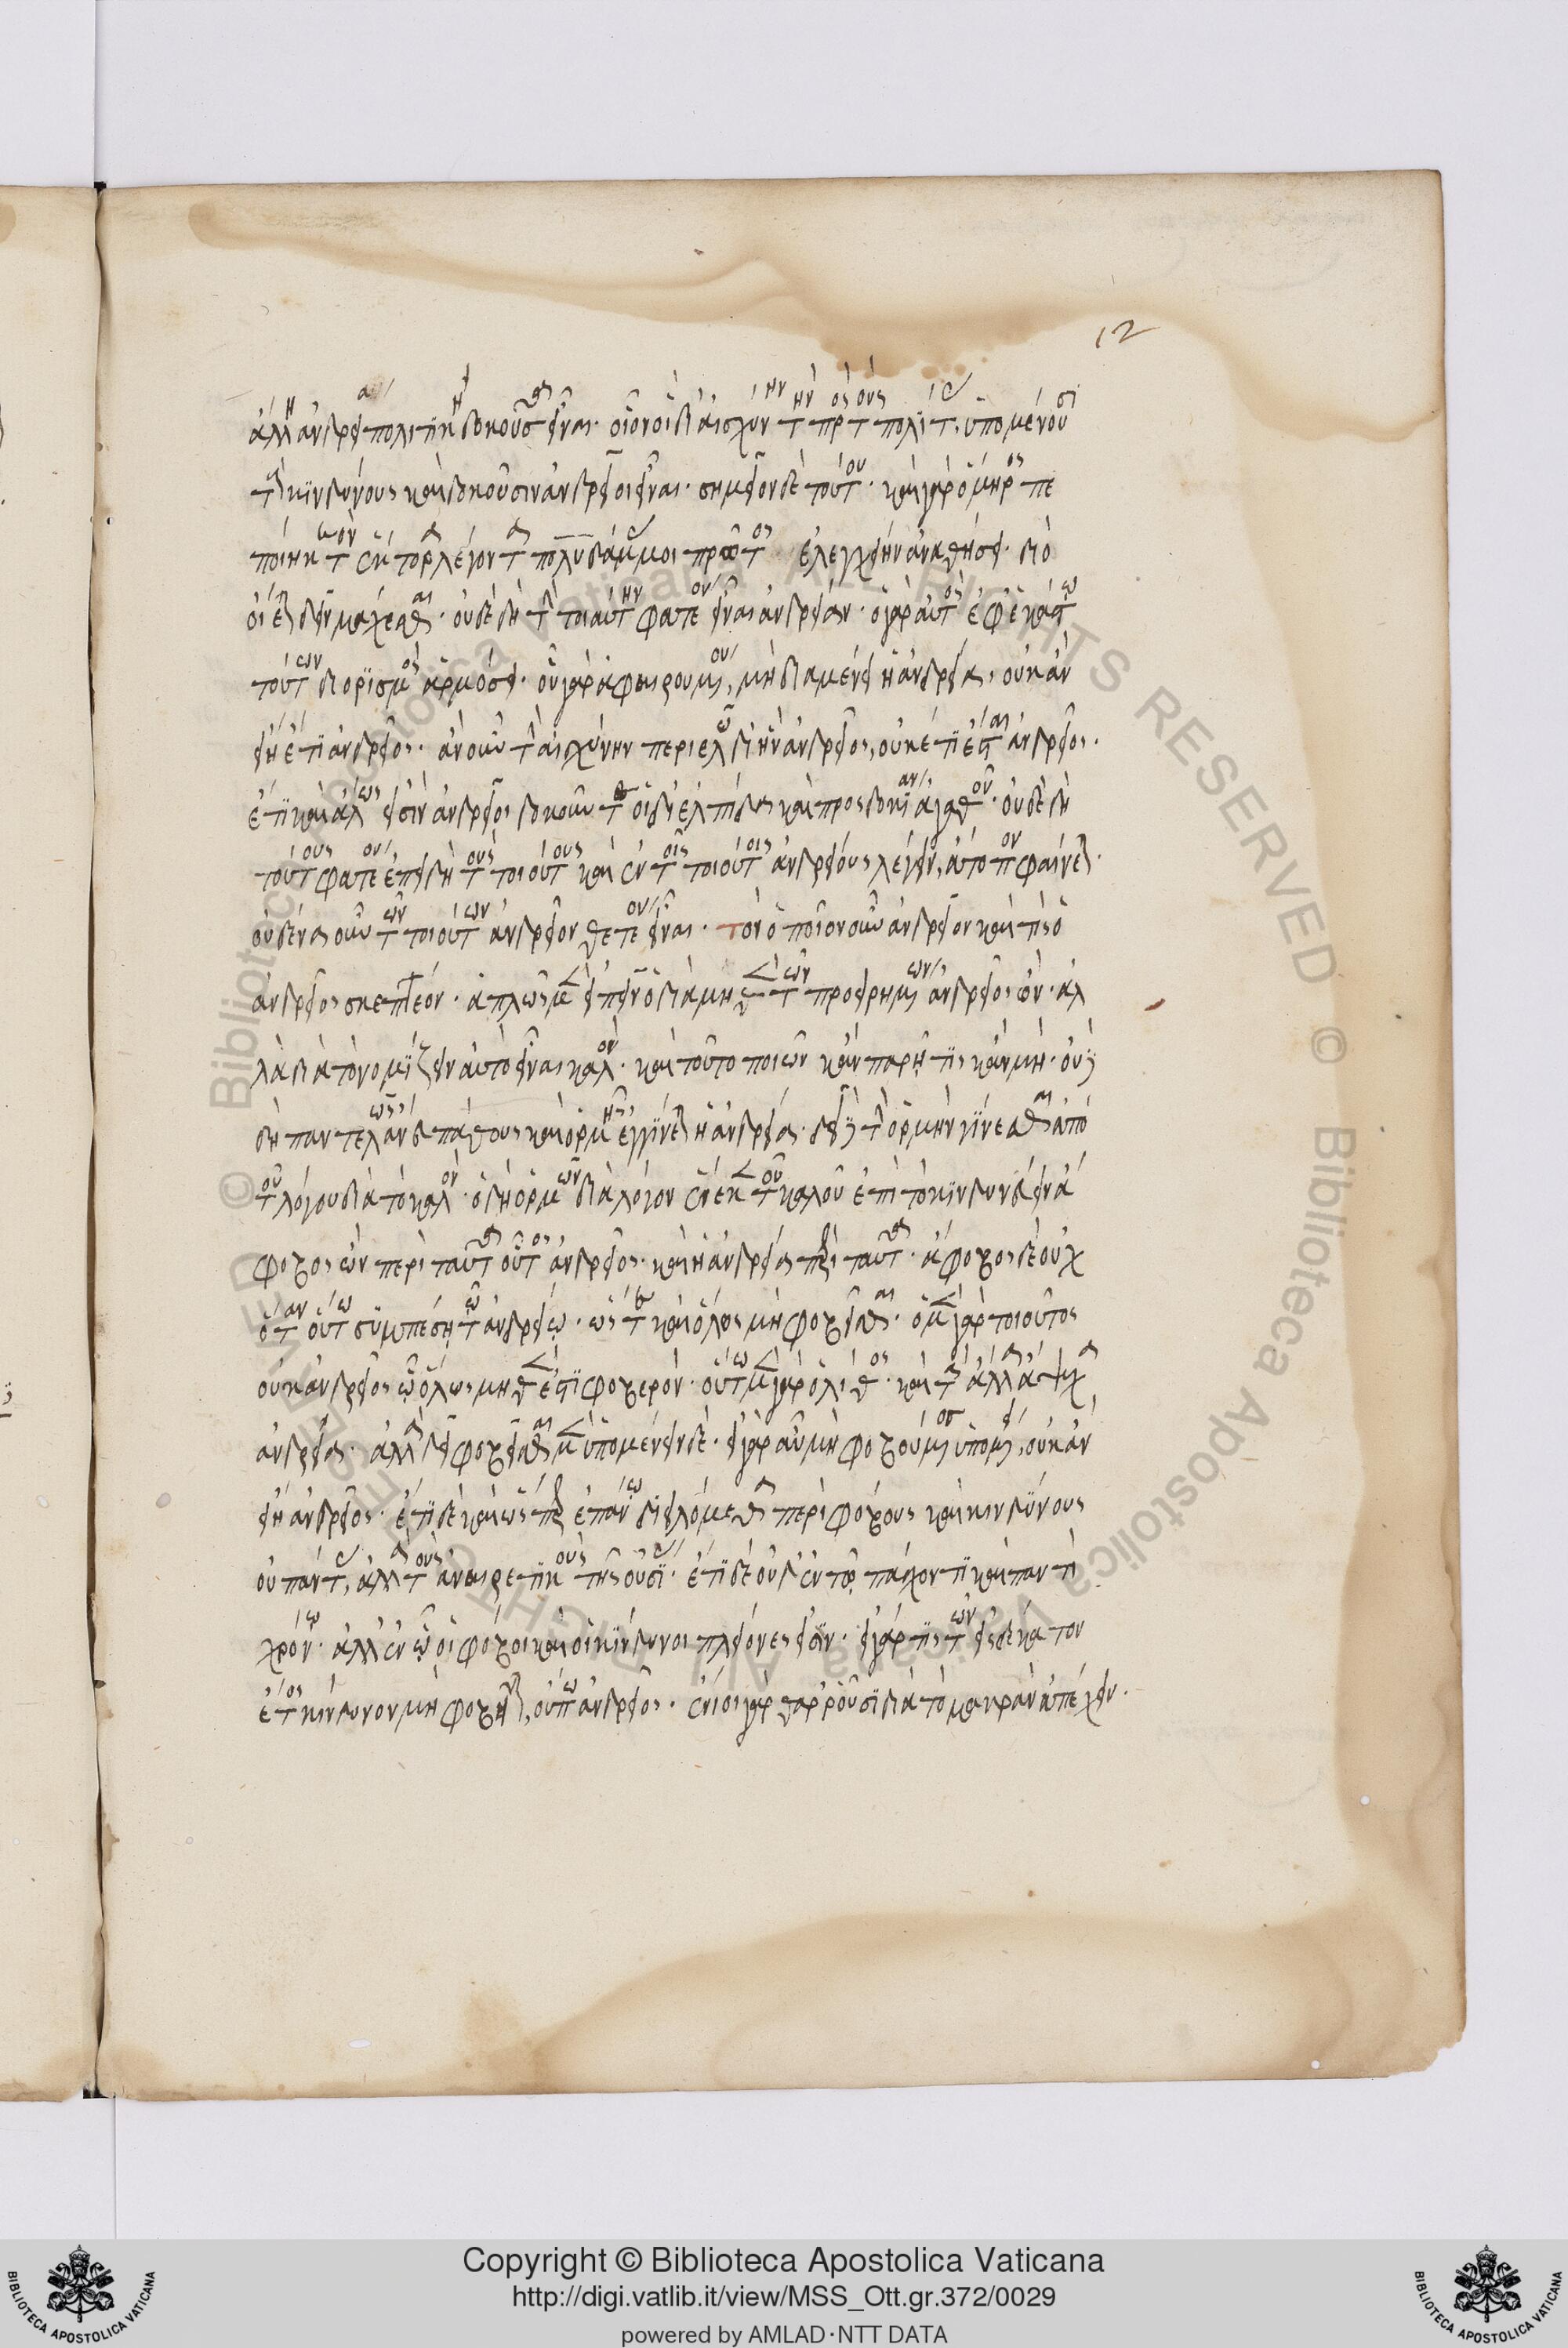 12
ἄλλη ἀνδρεία πολιτικὴ δοκοῦσα εἶναι· οἷον οἱ δι' αἰσχύνην τὴν πρὸς τοὺς πολίτας ὑπομένουσι
τοὺς κινδύνους καὶ δοκοῦσιν ἀνδρεῖοι εἶναι· σημεῖον δὲ τούτου· καὶ γὰρ ὅμηρος πε
ποίηκε τὸν ἕκτορα λέγοντα πολυδάμας μοι πρῶτος ἐλεγχείην ἀναθήσει· διὸ
οἴεται δεῖν μάχεσθαι· οὐδὲ δὴ τὴν τοιαύτην φατέον εἶναι ἀνδρείαν· ὁ γὰρ αὐτὸς ἐφ' ἑκάστου
τούτων διορισμὸς ἁρμόσει· οὗ γὰρ ἀφαιρουμένου μὴ διαμένει ἡ ἀνδρεία, οὐκ ἂν
εἴη ἔτι ἀνδρεῖος· ἂν οὖν τὴν αἰσχύνην περιέλω δι' ἣν ἦν ἀνδρεῖος, οὐκέτι ἔσται ἀνδρεῖος.
ἔτι καὶ ἄλλως εἰσὶν ἀνδρεῖοι δοκοῦντες οἱ δι' ἐλπίδα καὶ προσδοκίαν ἀγαθοῦ· οὐδὲ δὴ
τούτους φατέον ἐπειδὴ τοὺς τοιούτους καὶ ἐν τοῖς τοιούτοις ἀνδρείους λέγειν, ἄτοπον φαίνεται.
οὐδένα οὖν τῶν τοιούτων ἀνδρεῖον θετέον εἶναι· τὸν ὁποῖον οὖν ἀνδρεῖον καὶ τίς ὁ
ἀνδρεῖος σκεπτέον· ἁπλῶς μὲν εἰπεῖν ὁ διὰ μηδὲν τῶν προειρημένων ἀνδρεῖος ὤν· ἀλ
λὰ διὰ τὸ νομίζειν αὐτὸ εἶναι καλόν· καὶ τοῦτο ποιῶν κἂν παρῇ τις κἂν μή· οὐ
δὴ παντελῶς ἄνευ πάθους καὶ ὁρμῆς ἐγγίνεται ἡ ἀνδρεία· δεῖ δὲ τὴν ὁρμὴν γίνεσθαι ἀπὸ
τοῦ λόγου διὰ τὸ καλόν· ὁ δὴ ὁρμῶν διὰ λόγον ἕνεκεν τοῦ καλοῦ ἐπὶ τὸ κινδυνεύειν ἄ
φοβος ὢν περὶ ταῦτα οὗτος ἀνδρεῖος· καὶ ἡ ἀνδρεία περὶ ταῦτα· ἄφοβος δὲ οὐχ
ὅταν οὕτω συμπέσῃ τῷ ἀνδρείῳ· ὥστε καὶ ὅλως μὴ φοβεῖσθαι· ὁ μὲν γὰρ τοιοῦτος
οὐκ ἀνδρεῖος ᾧ ὅλως μηδέν ἐστι φοβερόν· οὕτω μὲν γὰρ ὁ λίθος· καὶ τὰ ἄλλα ἄψυχα
ἀνδρεῖα· ἀλλὰ δεῖ φοβεῖσθαι μὲν ὑπομένειν δέ· εἰ γὰρ αὖ μὴ φοβούμενος ὑπομένει, οὐκ ἂν
εἴη ἀνδρεῖος· ἔτι δὲ καὶ ὥσπερ ἐπάνω διειλόμεθα περὶ φόβους καὶ κινδύνους
οὐ πάντας, ἀλλὰ τοὺς ἀναιρετικοὺς τῆς οὐσίας· ἔτι δὲ οὐδ' ἐν τῷ παρόντι καὶ παντὶ
χρόνῳ· ἀλλ' ἐν ᾧ οἱ φόβοι καὶ οἱ κίνδυνοι πλείονες εἰσίν· εἰ γάρ τις τὸν εἰς δέκατον
ἔτος κίνδυνον μὴ φοβεῖται, οὔπω ἀνδρεῖος· ἔνιοι γὰρ θαρροῦσι διὰ τὸ μακρὰν ἀπέχειν.
Copyright © Biblioteca Apostolica Vaticana
http://digi.vatlib.it/view/MSS_Ott.gr.372/0029
powered by AMLAD·NTT DATA